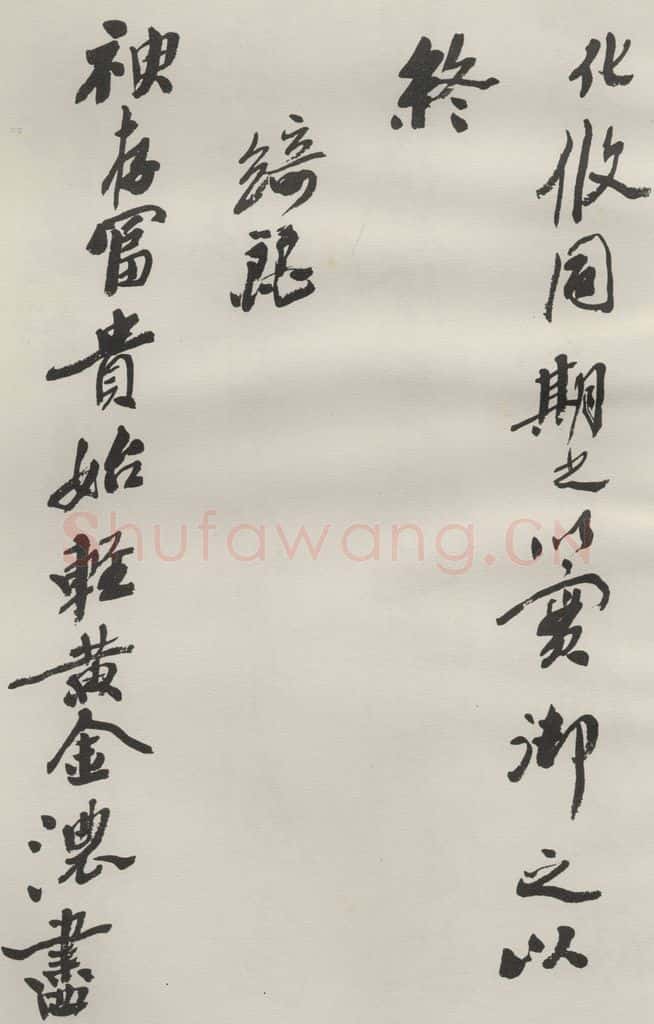 化攸同期之以實御之以
終
綺麗
神存富貴始輕黃金濃盡
Shufawang.CN